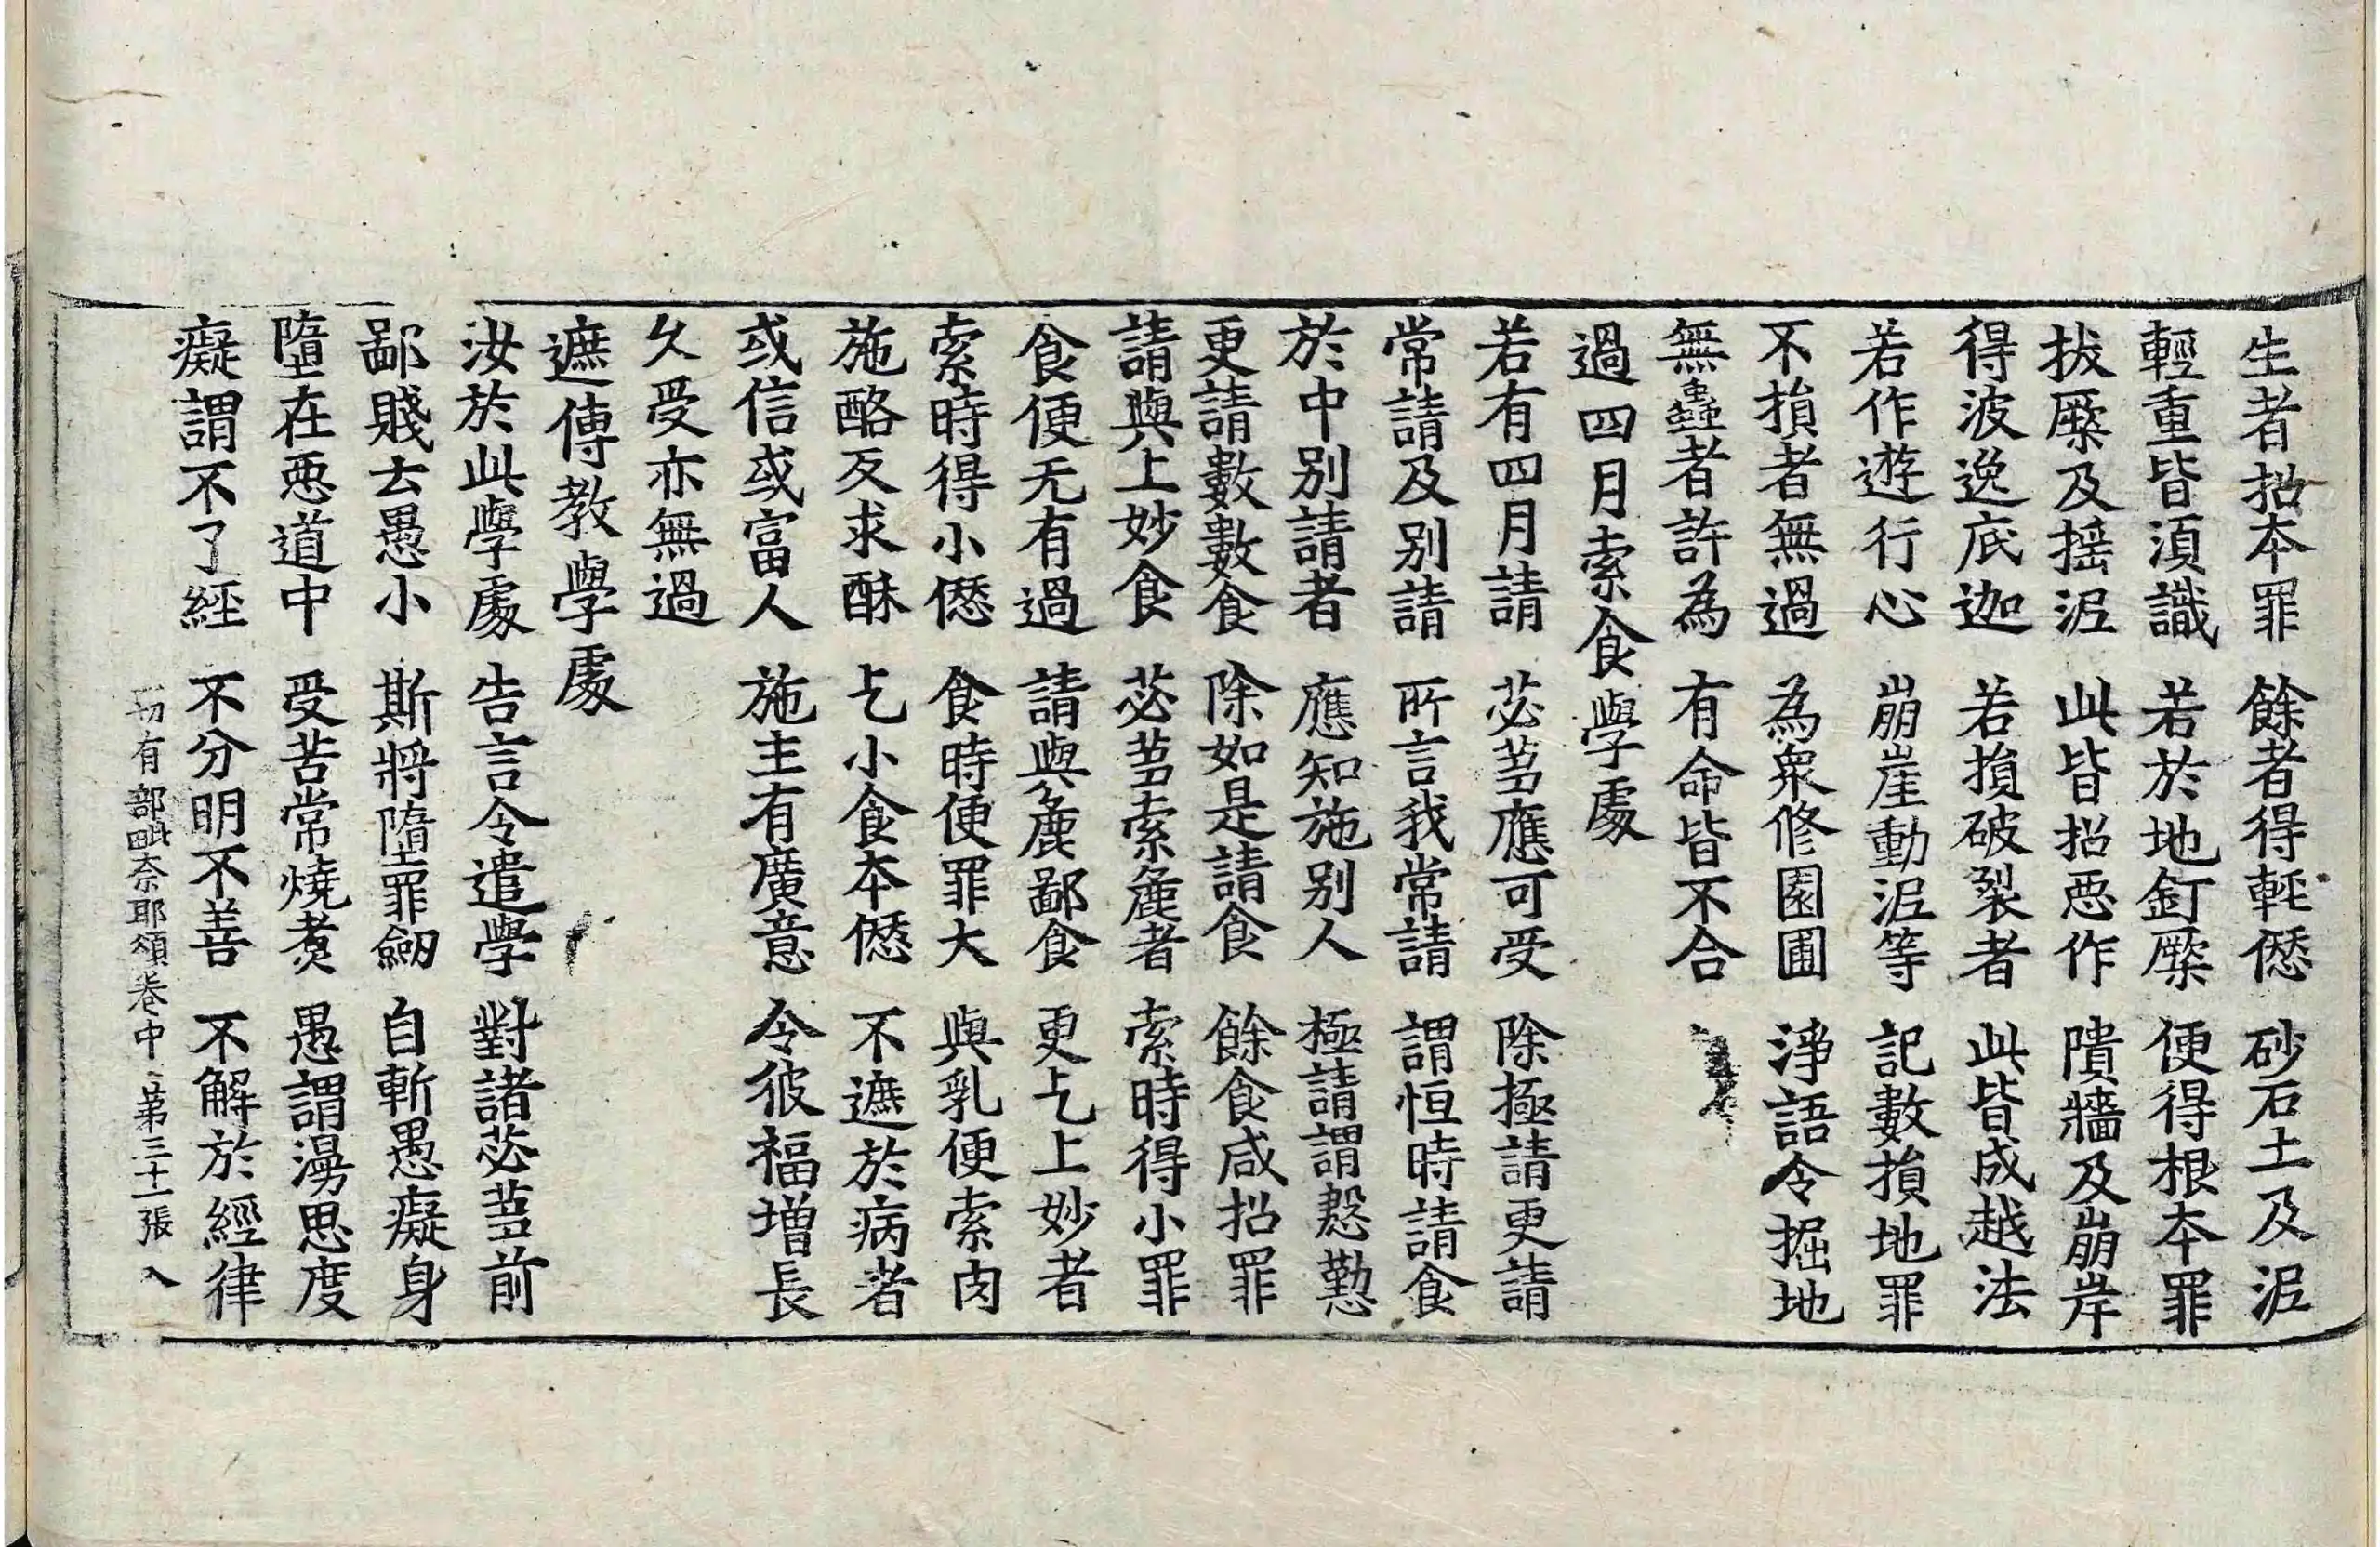 生者招本罪　餘者得輕𠎝　砂石土及泥
輕重皆須識　若於地釘橛　便得根本罪
拔橛及搖泥　此皆招惡作　隤牆及崩岸
得波逸底迦　若損破裂者　此皆成越法
若作遊行心　崩崖動泥等　記數損地罪
不損者無過　為衆修園圃　淨語令掘地
無蟲者許為　有命皆不合
過四月索食學處
若有四月請　苾芻應可受　除極請更請
常請及別請　所言我常請　謂恒時請食
於中別請者　應知施別人　極請謂慇懃
更請數數食　除如是請食　餘食咸招罪
請與上妙食　苾芻索麁者　索時得小罪
食便无有過　請與麁鄙食　更乞上妙者
索時得小𠎝　食時便罪大　與乳便索肉
施酪反求酥　乞小食本𠎝　不遮於病者
或信或富人　施主有廣意　令彼福增長
久受亦無過
遮傳教學處
汝於此學處　告言令遣學　對諸苾芻前
鄙賤去愚小　斯將墮罪劒　自斬愚癡身
墮在惡道中　受苦常燒煑　愚謂漫思度
癡謂不了經　不分明不善　不解於經律
一切有部毗奈耶頌卷中　第三十一張　入